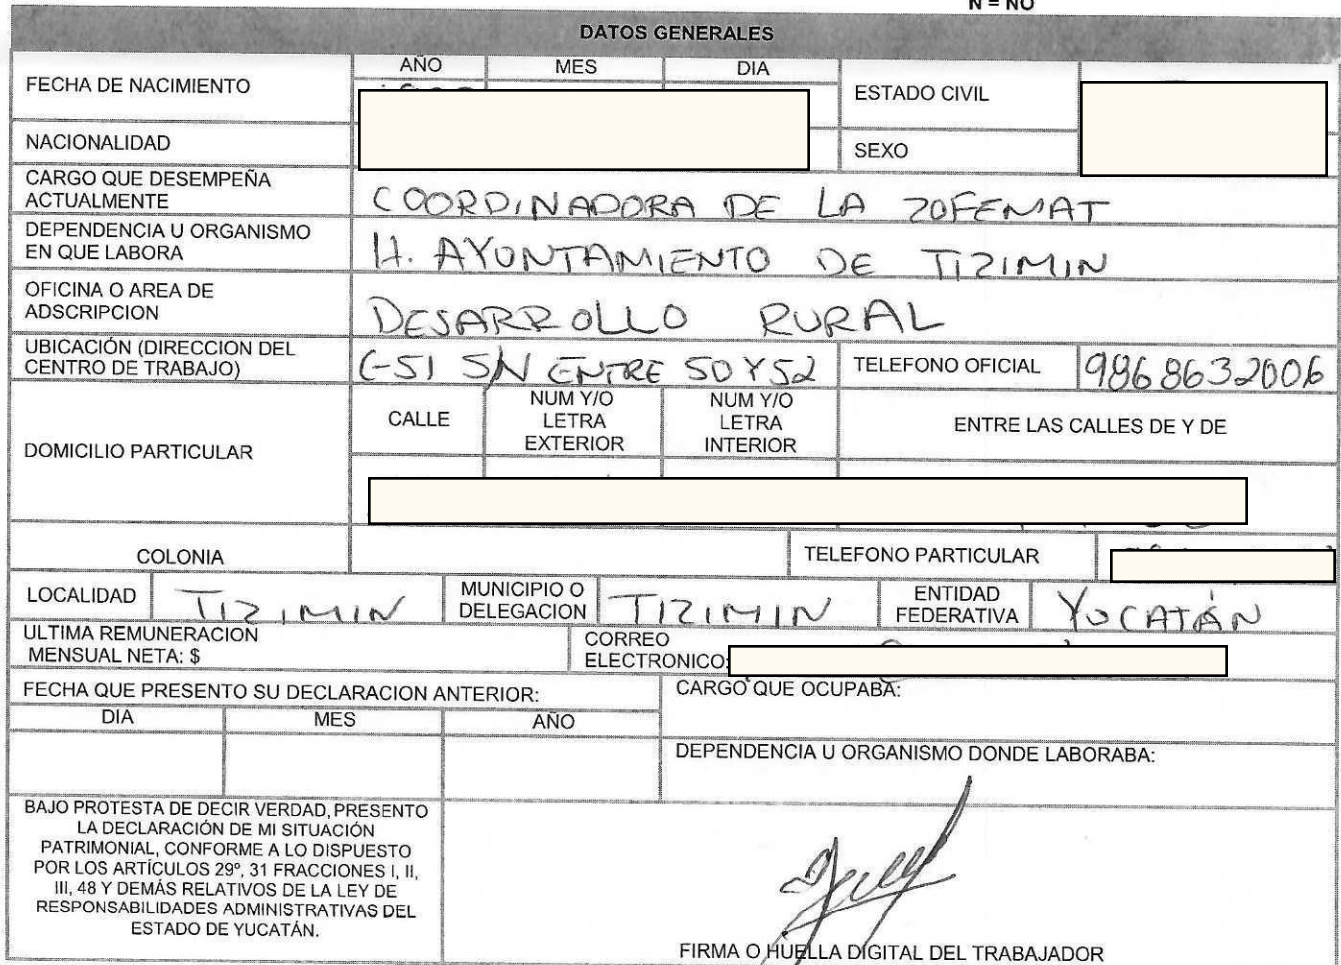 N = NO
DATOS GENERALES
FECHA DE NACIMIENTO
AÑO MES DIA
ESTADO CIVIL
NACIONALIDAD
SEXO
CARGO QUE DESEMPEÑA
ACTUALMENTE
COORDINADORA DE LA ZOFEMAT
DEPENDENCIA U ORGANISMO
EN QUE LABORA
H. AYUNTAMIENTO DE TIZIMIN
OFICINA O AREA DE
ADSCRIPCION
DESARROLLO RURAL
UBICACIÓN (DIRECCION DEL
CENTRO DE TRABAJO)
C-51 S/N ENTRE 50 Y 52
TELEFONO OFICIAL
9868632006
DOMICILIO PARTICULAR
CALLE
NUM Y/O
LETRA
EXTERIOR
NUM Y/O
LETRA
INTERIOR
ENTRE LAS CALLES DE Y DE
COLONIA
TELEFONO PARTICULAR
LOCALIDAD
TIZIMIN
MUNICIPIO O
DELEGACION
TIZIMIN
ENTIDAD
FEDERATIVA
YUCATÁN
ULTIMA REMUNERACION
MENSUAL NETA: $
CORREO
ELECTRONICO:
FECHA QUE PRESENTO SU DECLARACION ANTERIOR:
DIA MES AÑO
CARGO QUE OCUPABA:
DEPENDENCIA U ORGANISMO DONDE LABORABA:
BAJO PROTESTA DE DECIR VERDAD, PRESENTO
LA DECLARACIÓN DE MI SITUACIÓN
PATRIMONIAL, CONFORME A LO DISPUESTO
POR LOS ARTÍCULOS 29º, 31 FRACCIONES I, II,
III, 48 Y DEMÁS RELATIVOS DE LA LEY DE
RESPONSABILIDADES ADMINISTRATIVAS DEL
ESTADO DE YUCATÁN.
FIRMA O HUELLA DIGITAL DEL TRABAJADOR